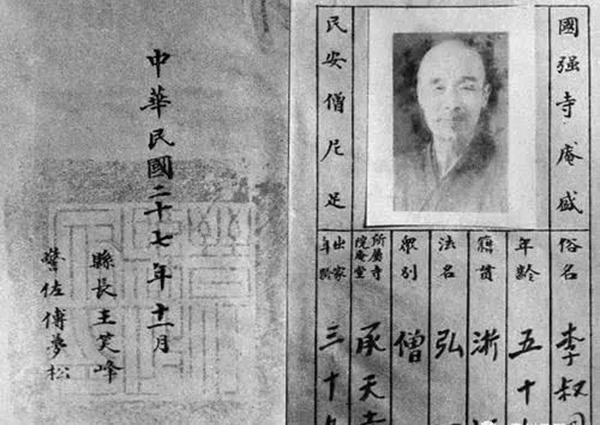 國强寺庵盛
民安僧尼足
俗名 李叔
年齡 五十
籍貫 浙
法名 弘
衆別 僧
所屬寺院庵堂 承天寺
出家年齡 三十
中華民國二十七年十一月
縣長王笑峰
警佐傅夢松